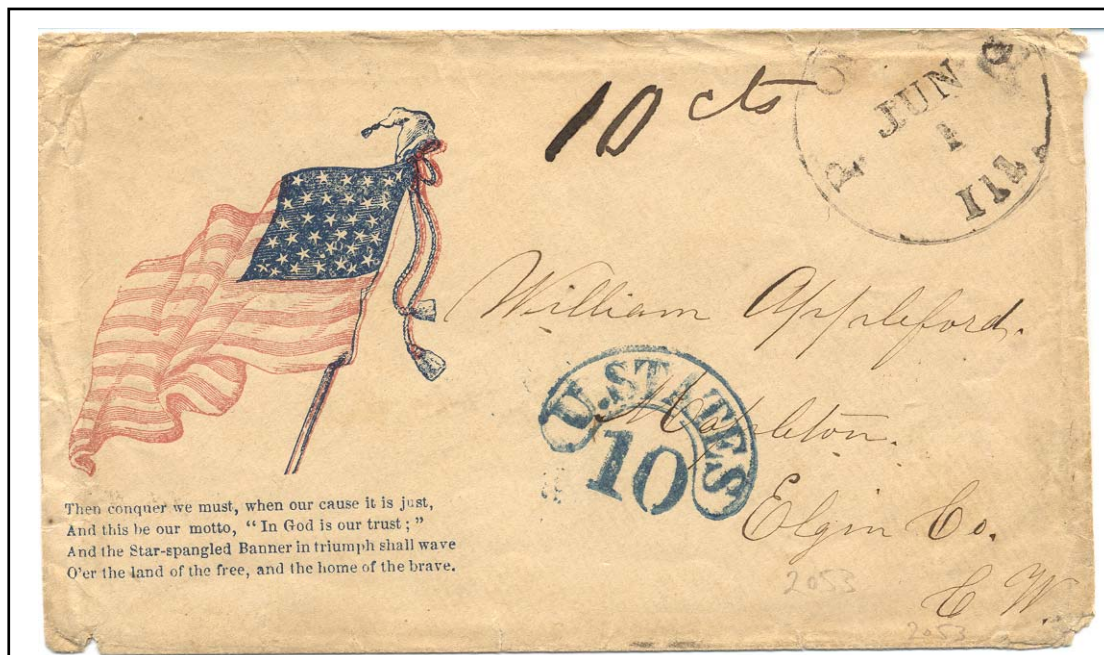 10 cts
JUN
1
Ill.
William Appleford.
U. STATES
10
Mapleton.
Elgin Co.
C W.
Then conquer we must, when our cause it is just,
And this be our motto, “In God is our trust;”
And the Star-spangled Banner in triumph shall wave
O'er the land of the free, and the home of the brave.
2053
2053